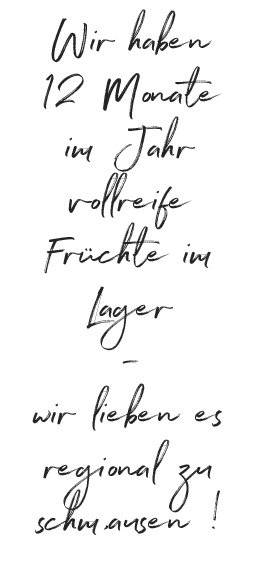 Wir haben
12 Monate
im Jahr
vollreife
Früchte im
Lager
-
wir lieben es
regional zu
schmausen !